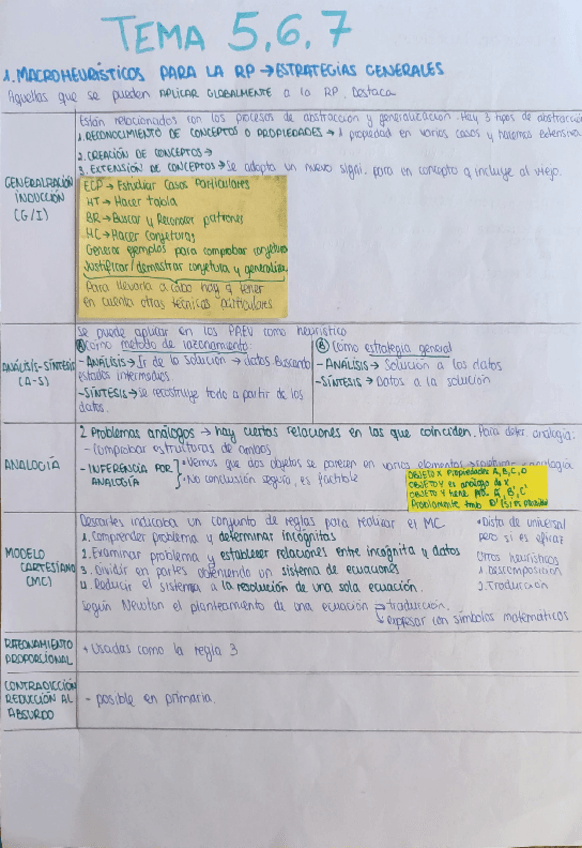 TEMA 5,6,7
1. MACROHEURÍSTICOS PARA LA RP → ESTRATEGIAS GENERALES
Aquellas que se pueden APLICAR GLOBALMENTE a la RP. Destaca
GENERALIZACIÓN
INDUCCIÓN
(G/I)
Están relacionados con los procesos de abstracción y generalización. Hay 3 tipos de abstracción
1. RECONOCIMIENTO DE CONCEPTOS O PROPIEDADES → 1 propiedad en varios casos y hacemos extensiva
2. CREACIÓN DE CONCEPTOS →
3. EXTENSIÓN DE CONCEPTOS → Se adopta un nuevo signi. para un concepto q incluye al viejo.
ECP → Estudiar Casos Particulares
HT → Hacer tabla
BR → Buscar y Reconocer patrones
HC → Hacer Conjeturas
Generar ejemplos para comprobar conjetura
Justificar/demostrar conjetura y generalizar
Para llevarla a cabo hay q tener
en cuenta otras técnicas particulares
ANÁLISIS-SÍNTESIS
(A-S)
Se puede aplicar en los PAEV como heurístico
A Como método de razonamiento:
- ANÁLISIS → Ir de la solución → datos buscando
estados intermedios.
- SÍNTESIS → se reconstruye todo a partir de los
datos.
B Como estrategia general
- ANÁLISIS → Solución a los datos
- SÍNTESIS → Datos a la solución
ANALOGÍA
2 Problemas análogos → hay ciertas relaciones en las que coinciden. Para deter. analogía:
- Comprobar estructuras de ambos
- INFERENCIA POR
ANALOGÍA
• Vemos que dos objetos se parecen en varios elementos → analogía
• No conclusión segura, es factible
OBJETO X Propiedades A, B, C, D
OBJETO Y es análogo de X
OBJETO Y tiene A', B', C'
Probablemente tmb D'
MODELO
CARTESIANO
(MC)
Descartes indicaba un conjunto de reglas para realizar el MC
1. Comprender problema y determinar incógnitas
2. Examinar problema y establecer relaciones entre incógnita y datos
3. Dividir en partes obteniendo un sistema de ecuaciones
4. Reducir el sistema a la resolución de una sola ecuación.
Según Newton el planteamiento de una ecuación → traducción.
↳ expresar con símbolos matemáticos
• Dista de universal
pero sí es eficaz
Otros heurísticos
1. Descomposición
2. Traducción
RAZONAMIENTO
PROPORCIONAL
+ Usadas como la regla 3
CONTRADICCIÓN
REDUCCIÓN AL
ABSURDO
- posible en primaria.